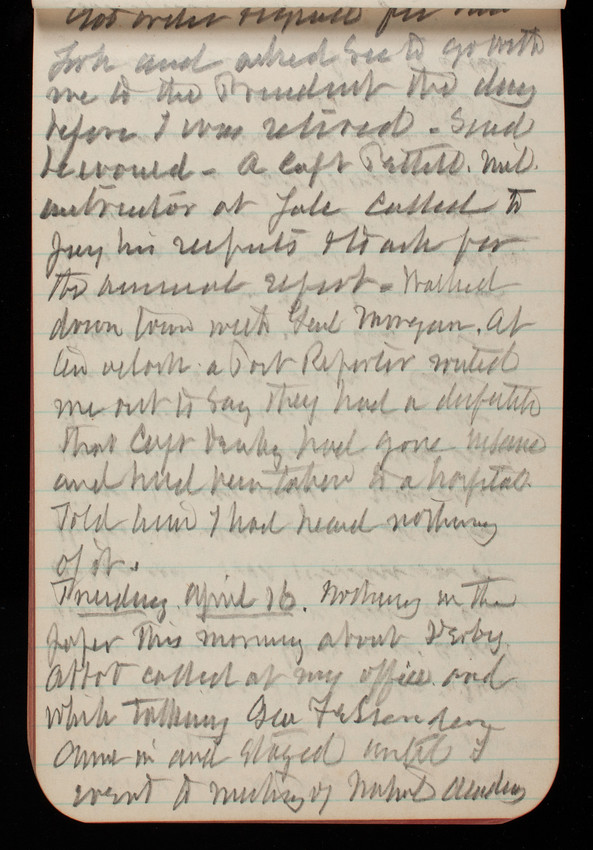 and asked Sec to go with
me to the President the day
before I was retired - Said
he would - A Capt Pettit. Mil.
instructor at Yale called to
pay his respects & to ask for
the annual report - Walked
down town with Genl Morgan. At
o'clock a Post Reporter
me out to say they had a dispatch
that Capt Derby had gone insane
and had been taken to a hospital
Told him I had heard nothing
of it.
Thursday April 16. Nothing in the
paper this morning about Derby.
Abbot called at my office and
while talking Gen Fessenden
came in and stayed until I
went to meeting of National Academy